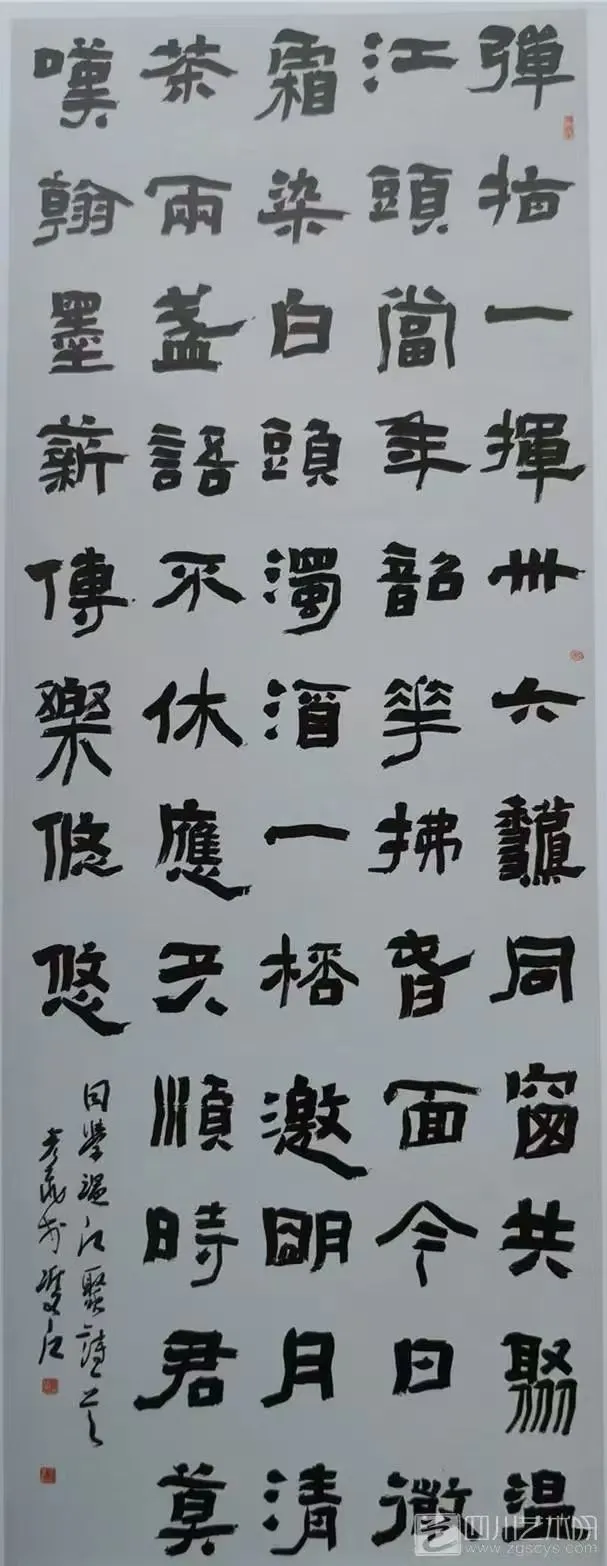 彈指一揮卅六同窗共聚温
江頭當年韶華拂昔面今日微
霜染白頭濁酒一桮邀朙月清
茶兩盞語不休應天順時君莫
嘆翰墨薪傳樂悠悠
同學温江聚詩
四川艺术网
www.zgscys.com